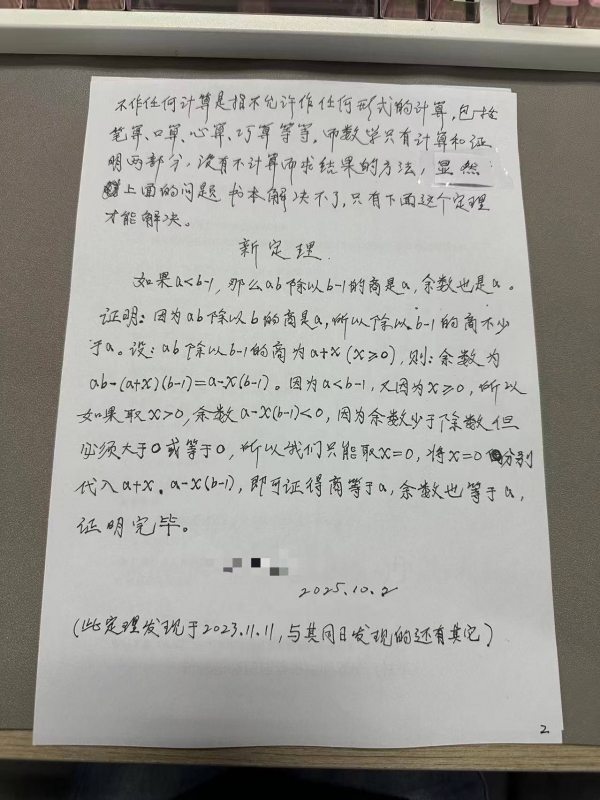 不作任何计算是指不允许作任何形式的计算，包括
笔算、口算、心算、巧算等等。而数学只有计算和证
明两部分，没有不计算而求结果的方法，显然
上面的问题书本解决不了，只有下面这个定理
才能解决。
新定理
如果a<b-1，那么ab除以b-1的商是a，余数也是a。
证明：因为ab除以b的商是a，所以除以b-1的商不少
于a。设：ab除以b-1的商为a+x(x≥0)，则：余数为
ab-(a+x)(b-1)=a-x(b-1)。因为a<b-1，又因为x≥0，所以
如果取x>0，余数a-x(b-1)<0，因为余数少于除数但
必须大于0或等于0，所以我们只能取x=0，将x=0分别
代入a+x、a-x(b-1)，即可证得商等于a，余数也等于a，
证明完毕。
2025.10.2
(此定理发现于2023.11.11，与其同日发现的还有其它)
2